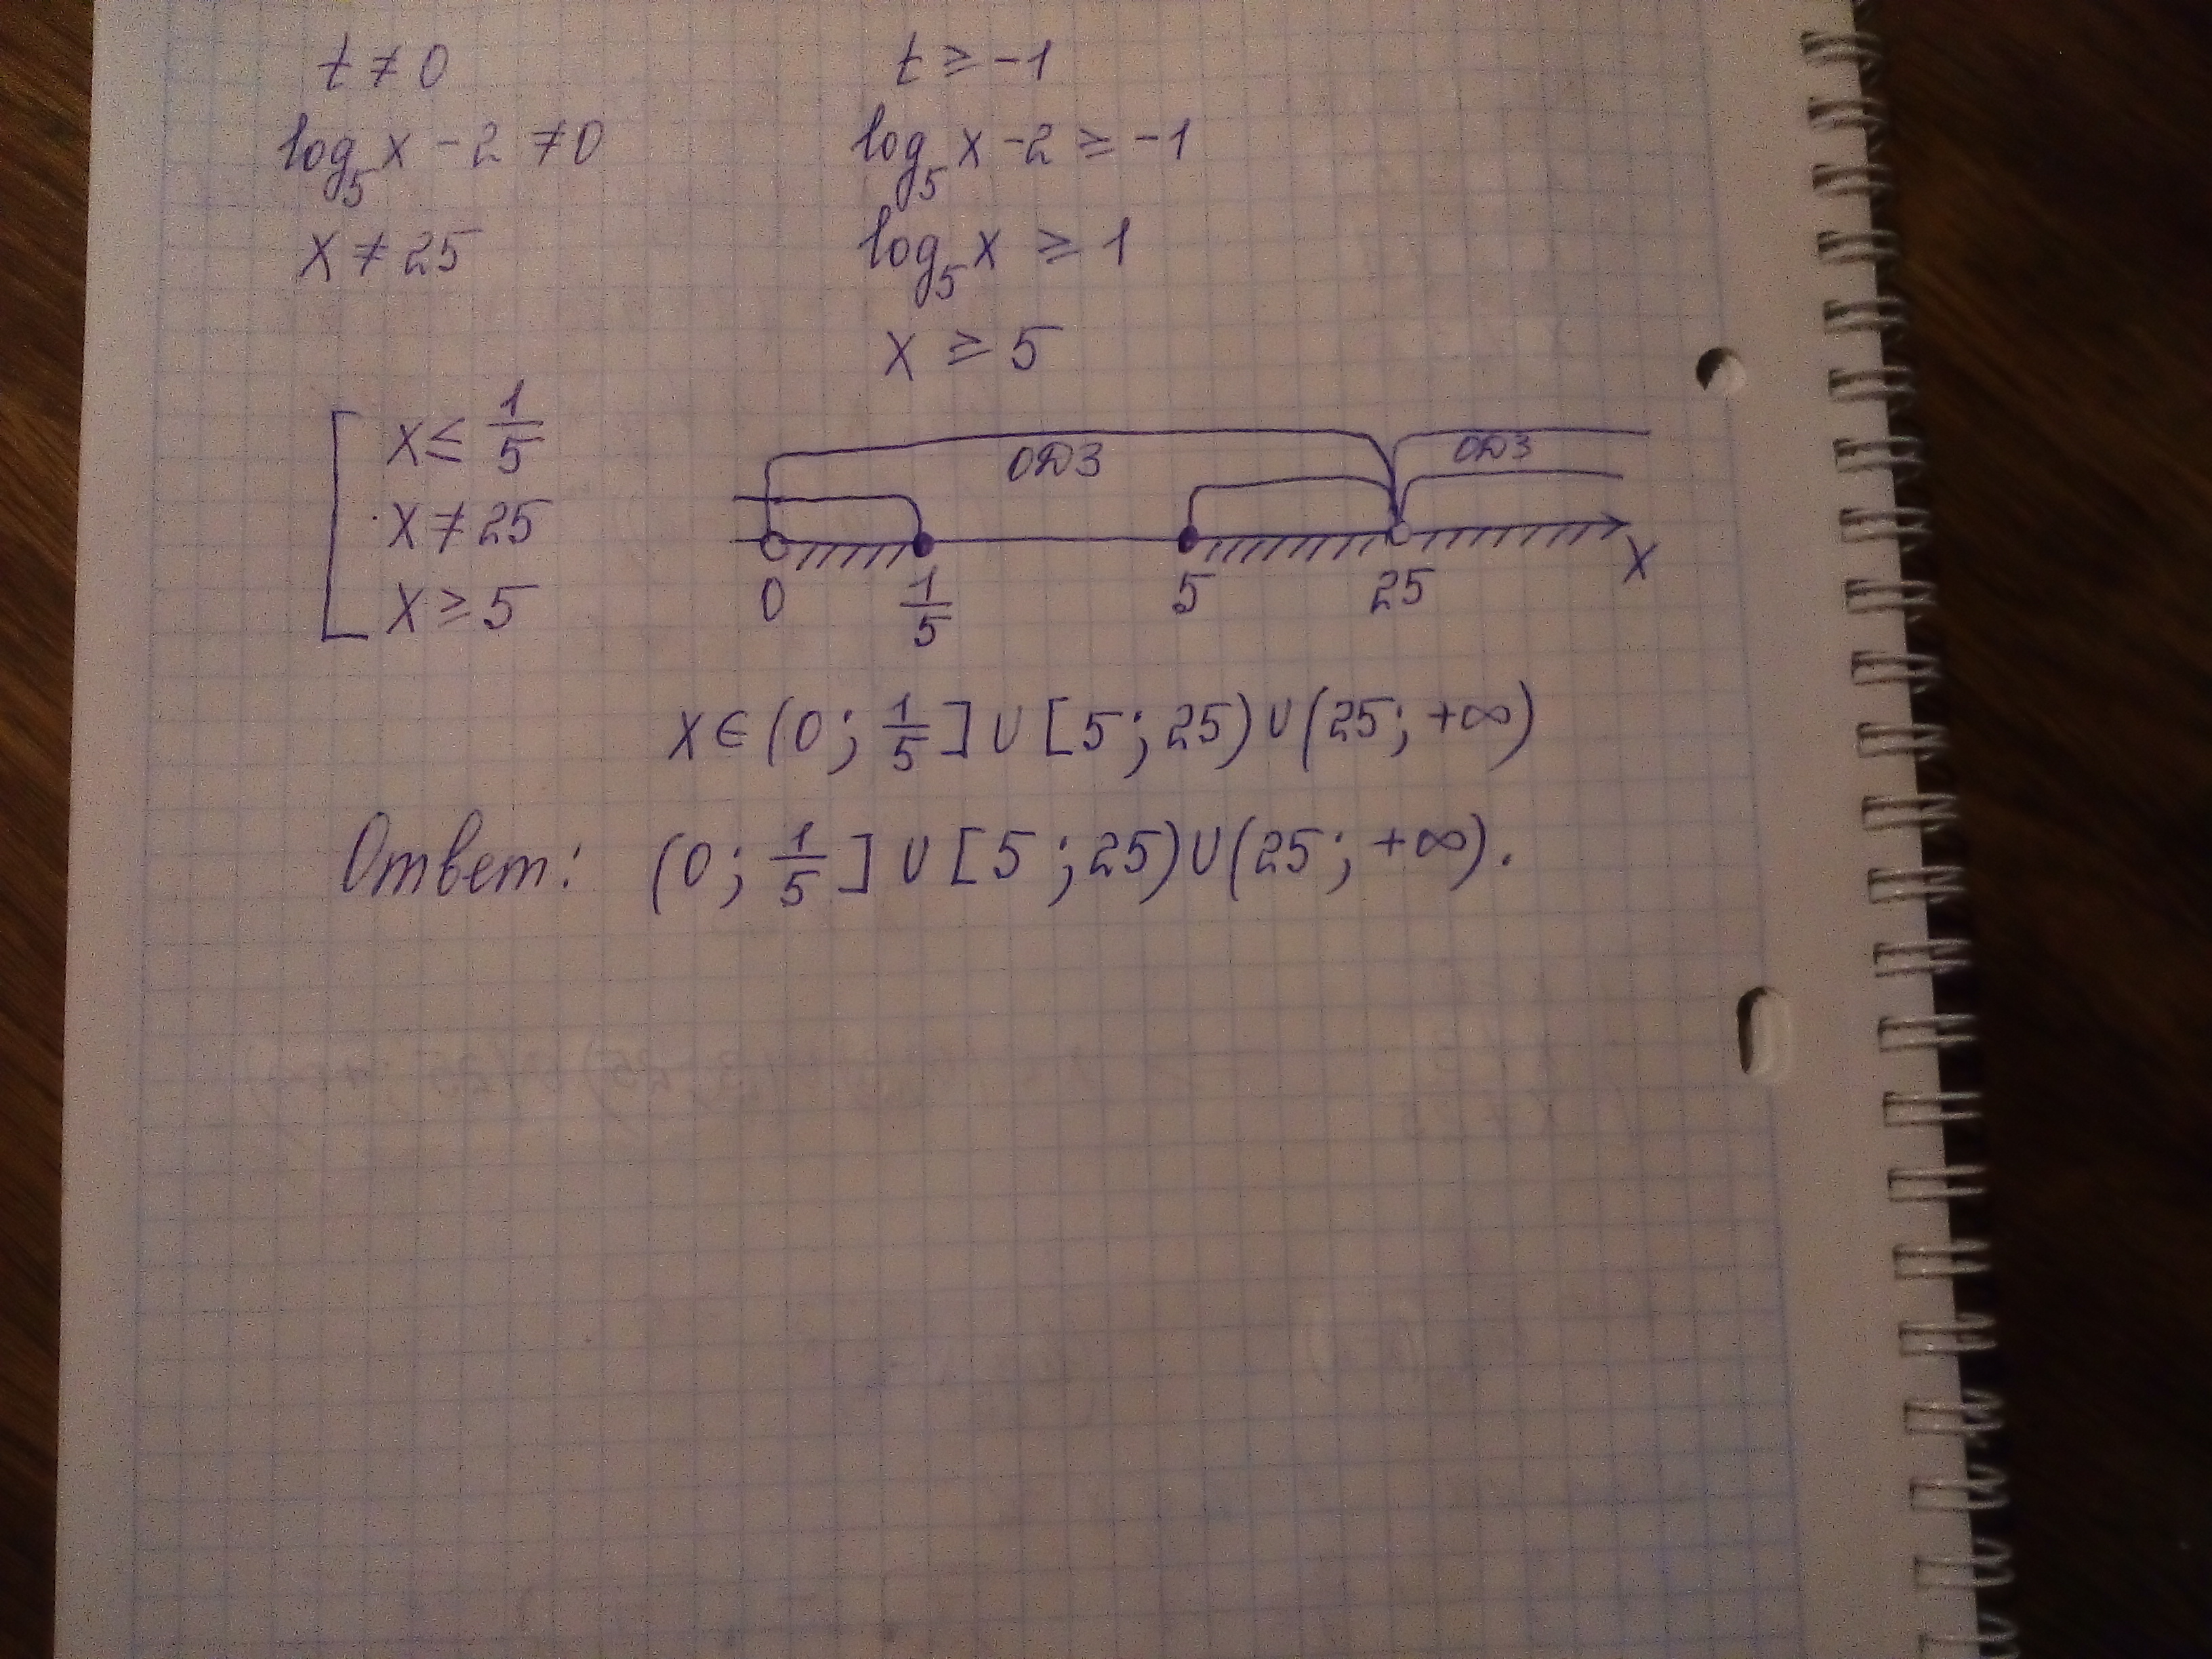 t ≠ 0 t ≥ -1
log₅ x - 2 ≠ 0 log₅ x - 2 ≥ -1
x ≠ 25 log₅ x ≥ 1
x ≥ 5
[ x ≤ 1/5
x ≠ 25
x ≥ 5
ОДЗ ОДЗ
0 1/5 5 25 x
x ∈ (0; 1/5] ∪ [5; 25) ∪ (25; +∞)
Ответ: (0; 1/5] ∪ [5; 25) ∪ (25; +∞).